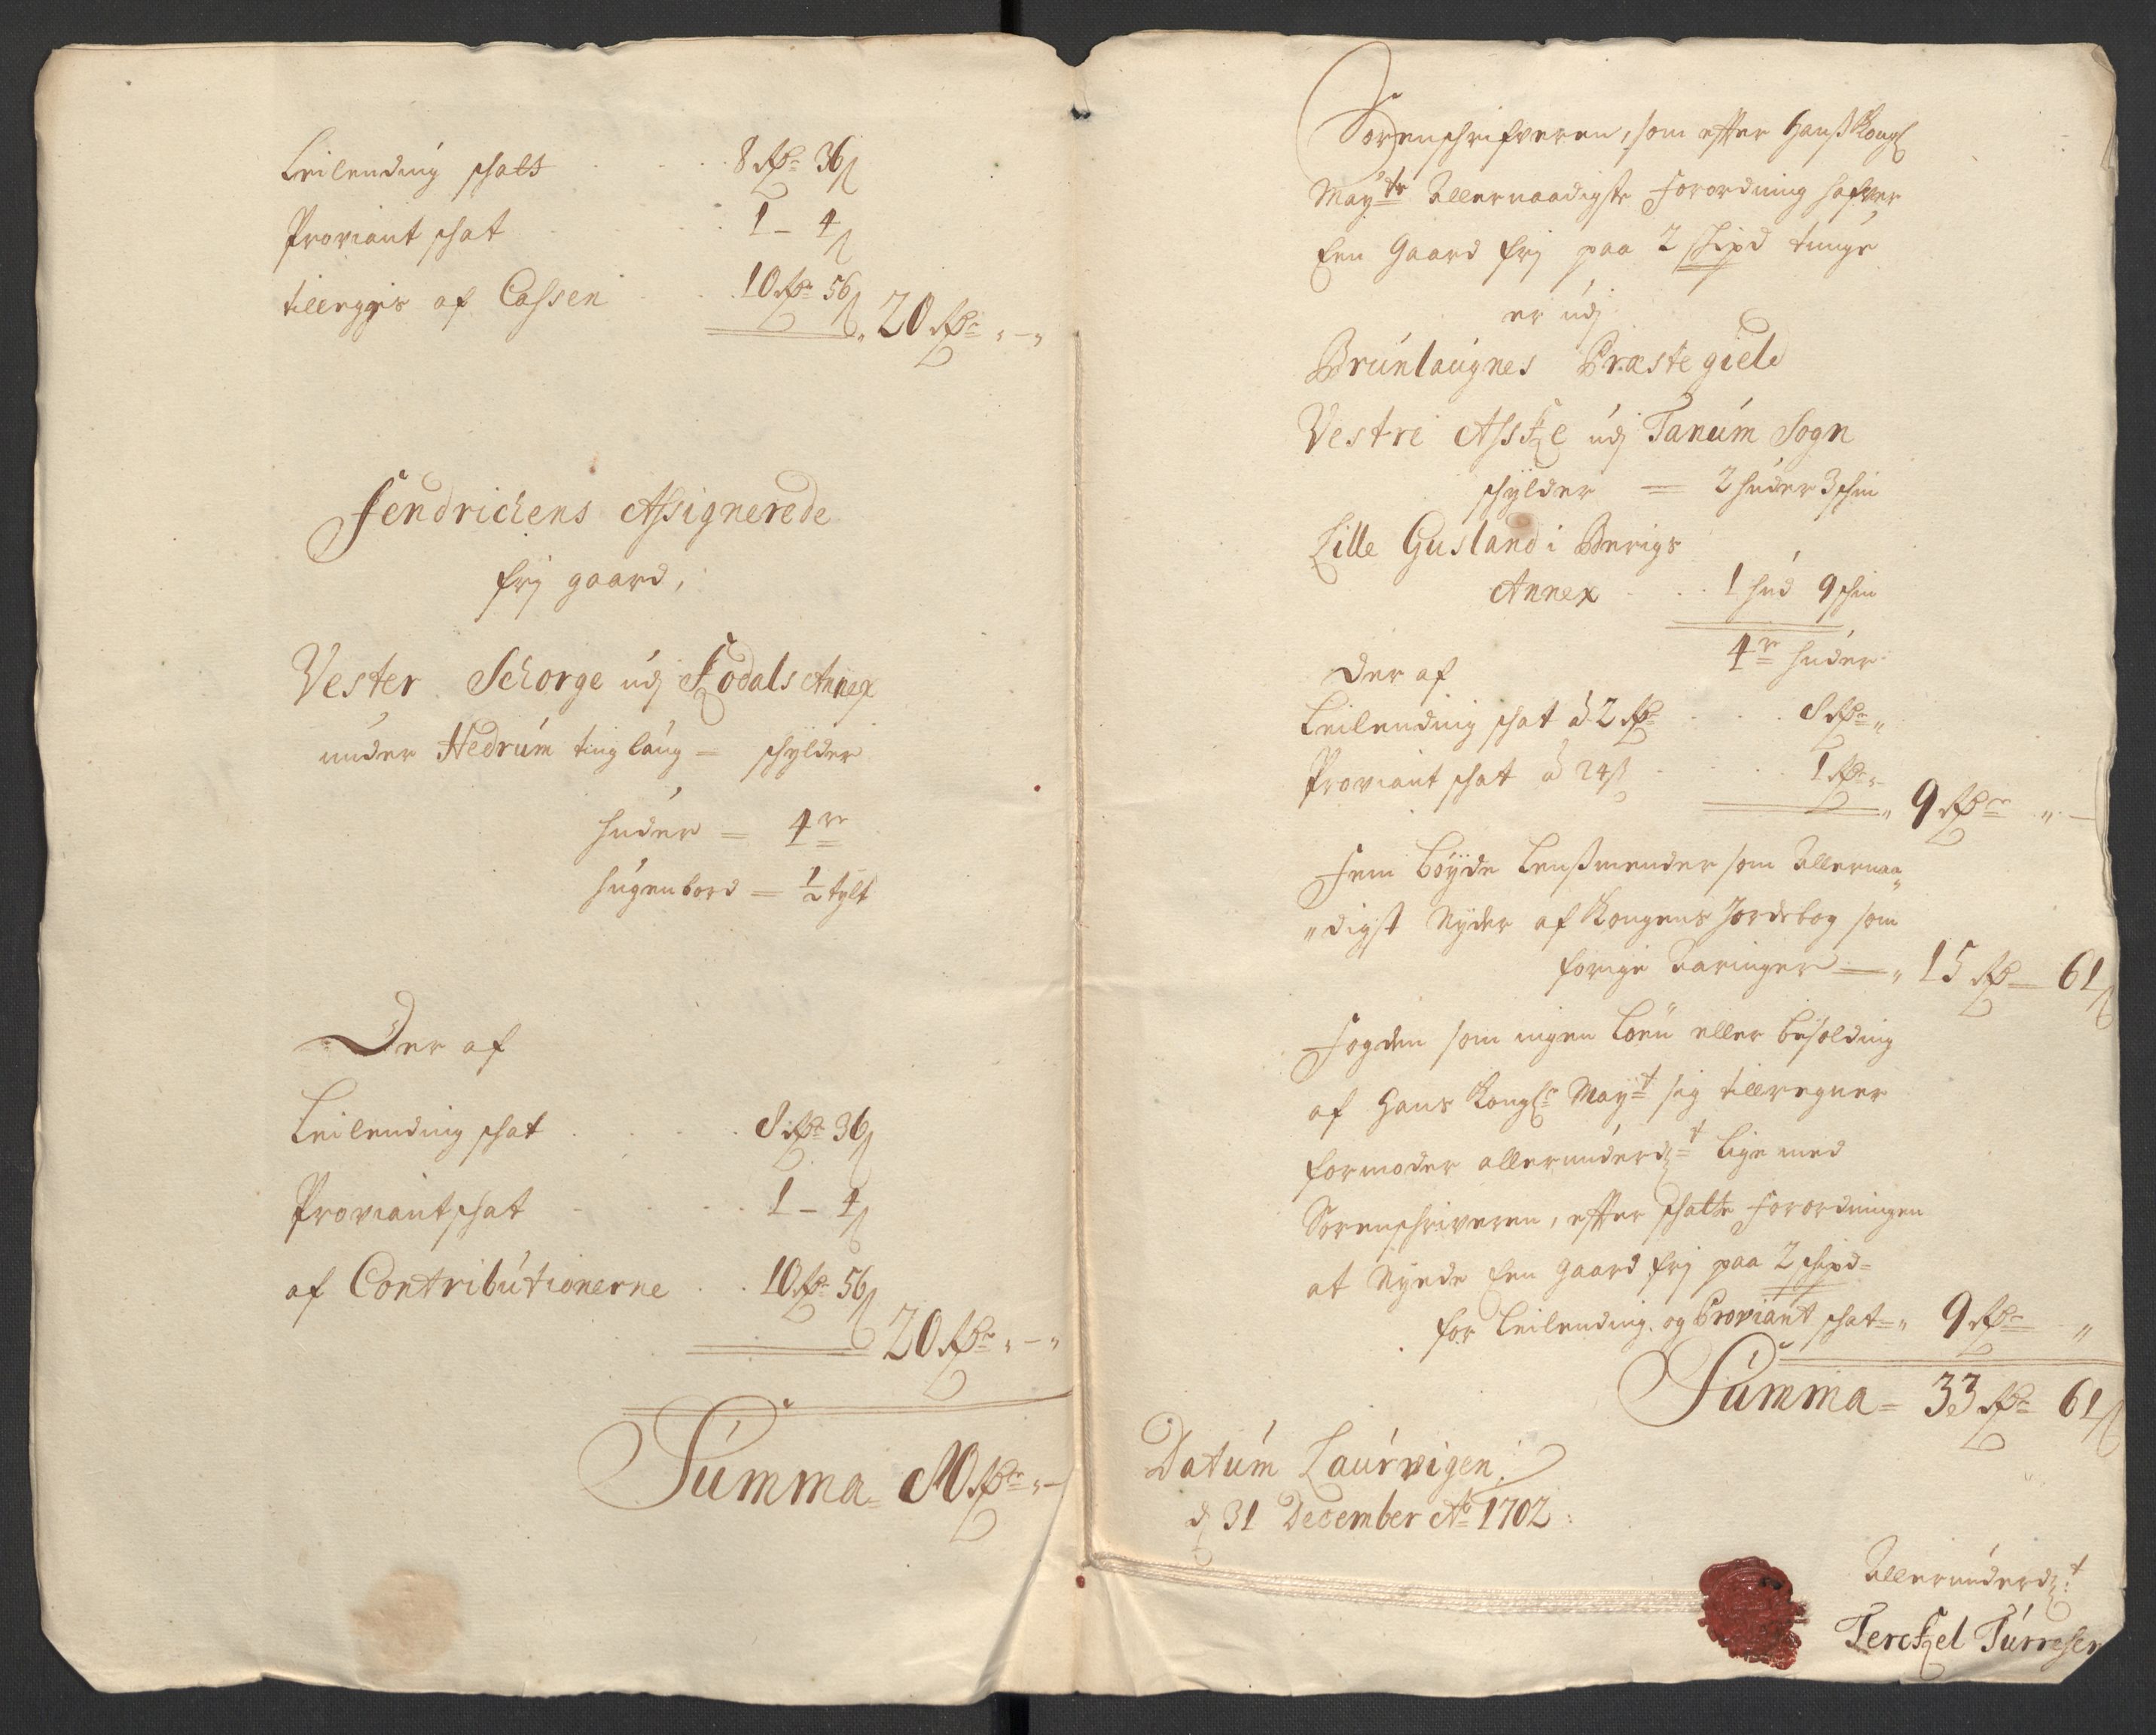 Leilending schatt . . . 8 Rdr 36 s
Proviant schat . . . 1 – 4 s
tilleggis af Cassen . . 10 Rdr 56 s „ 20 Rdr „ – „
Fendrichens Assignerede
frj gaard,
Vester Schorge udj Kodals Annex
under Hedrúm tinglaúg = schylder
húder = 4re
húgenbord = ½ tylt
Der af
Leilending schat . . . . 8 Rdr 36 s
Proviantschat . . . . 1 – 4 s
af Contribútionerne . . 10 Rdr 56 s
20 Rdr „ – „
Súmma = 80 Rdr „ –
Sorenschrifveren, som efter Hanß Kongl
Mayts Allernaadigste Forordning hafver
Een Gaard frj paa 2 schpd tunge
er udj
Brúnlaúgnes Præstegield
Vestre Asske udj Tanúm Sogn
schylder = 2 húder 3 schin
Lille Gusland i Bergs
Annex . . . 1 hud 9 schin
4re húder
Der af
Leilending schat à 2 Rdr . . . 8 Rdr „
Proviant schat à 24 s . . . 1 Rdr „ –
„ 9 Rdr „ –
Fem bøyde Lenßmender som Allernaa„
„digst Nyder af Kongens Jordebog som
forige Aaringer — „ 15 Rd — 61 s
Fogden som ingen Løn eller besolding
af Hans Kongl. Mayt sig tillregner
formoder allerúnderdt lige med
Sorenschriveren, efter schatte Forordningen
at Nyde Een gaard frj paa 2 schpd =
for Leilending og Proviant schat = „ 9 Rdr „
Súmma = 33 Rdr 61 s
Datúm Laúrvigen
d 31 December Ao 1702 :
Allerúnderdt
Terckel Túrresen